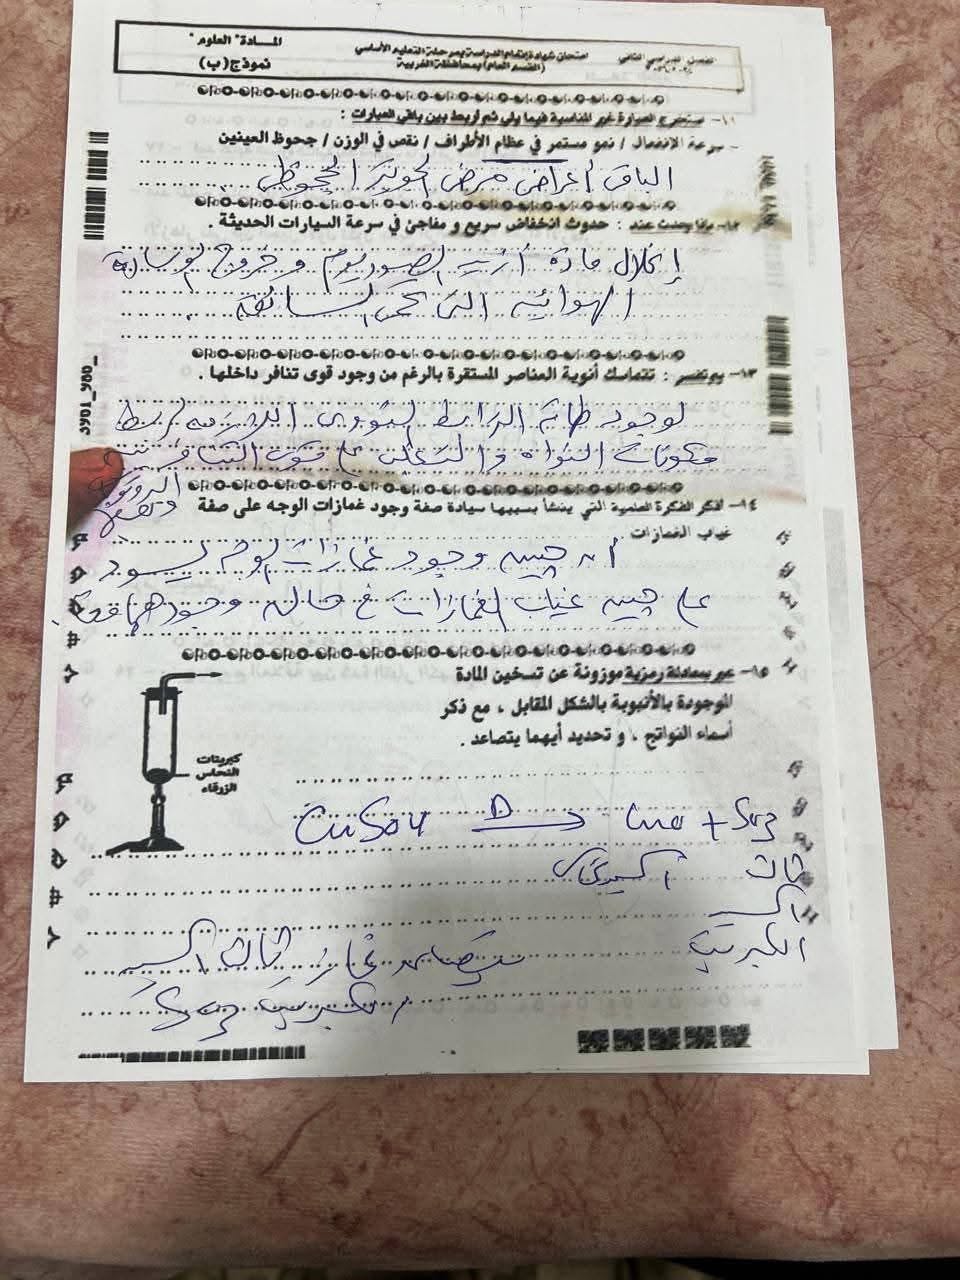 المادة "العلوم"
امتحان شهادة إتمام الدراسة بمرحلة التعليم الأساسي
الفصل الدراسي الثاني
نموذج (ب)
(القسم العام) بمحافظة الغربية
١١- استخرج العبارة غير المناسبة فيما يلي ثم اربط بين باقي العبارات :
- سرعة الانفعال / نمو مستمر في عظام الأطراف / نقص في الوزن / جحوظ العينين
الباقى أعراض مرض الجويتر الجحوظى
١٢- ماذا يحدث عند : حدوث انخفاض سريع و مفاجئ في سرعة السيارات الحديثة .
إنحلال مادة أزيد الصوديوم و خروج الوسادة
الهوائية التى تحمى السائق
١٣- بم تفسر : تتماسك أنوية العناصر المستقرة بالرغم من وجود قوى تنافر داخلها .
لوجود طاقة الترابط النووى اللازمة لربط
مكونات النواة والتغلب على قوة التنافر بين
البروتونات وبعضها
١٤- اذكر الفكرة العلمية التي ينشأ بسببها سيادة صفة وجود غمازات الوجه على صفة
غياب الغمازات
أن جين وجود غمازات الوجه يسود
على جين غياب الغمازات في حالة وجودهما معًا
١٥- عبر بمعادلة رمزية موزونة عن تسخين المادة
الموجودة بالأنبوبة بالشكل المقابل ، مع ذكر
أسماء النواتج ، و تحديد أيهما يتصاعد .
كبريتات
النحاس
الزرقاء
CuSO4 Δ→ CuO + SO3
ثالث
أكسيد
الكبريت
يتصاعد غاز ثالث أكسيد
الكبريت SO3
3901_980_